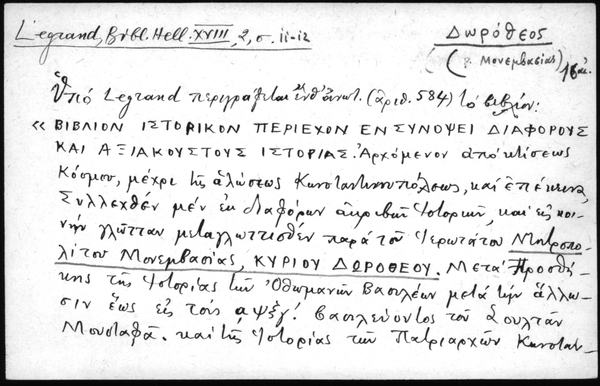 Legrand, Bibl. Hell. XVIII, 2, σ. 11-12
Δωρόθεος
( Μονεμβασίας) 18 αἰ.
Ὑπό Legrand περιγράφεται ἐκ (ἀριθ. 584) τό βιβλίον:
« ΒΙΒΛΙΟΝ ΙΣΤΟΡΙΚΟΝ ΠΕΡΙΕΧΟΝ ΕΝ ΣΥΝΟΨΕΙ ΔΙΑΦΟΡΟΥΣ
ΚΑΙ ΑΞΙΑΚΟΥΣΤΟΥΣ ΙΣΤΟΡΙΑΣ. Ἀρχόμενον ἀπό κτίσεως
Κόσμου, μέχρι τῆς ἁλώσεως Κωνσταντινουπόλεως, καί ἐπέκεινα,
Συλλεχθέν μέν ἐκ διαφόρων ἀκριβῶν Ἱστοριῶν, καί εἰς κοι-
νήν γλῶτταν μεταγλωττισθέν παρά τοῦ Ἱερωτάτου Μητροπο-
λίτου Μονεμβασίας, ΚΥΡΙΟΥ ΔΩΡΟΘΕΟΥ. Μετά Προσθή-
κης τῆς Ἱστορίας τῶν Ὀθωμανῶν Βασιλέων μετά τήν ἅλω-
σιν ἕως εἰς τούς αψξγʹ. βασιλεύοντος τοῦ Σουλτάν
Μουσταφᾶ. καί τῆς Ἱστορίας τῶν Πατριαρχῶν Κωνσταν-